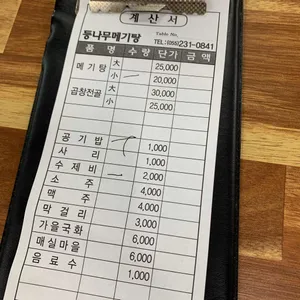 계산서
등나무메기탕 Table No.
TEL:(055)231-0841
품명 수량 단가 금액
메기탕 大 25,000
小 一 20,000
곱창전골 大 30,000
小 25,000
공기밥 1,000
사리 1,000
수제비 一 2,000
소주 4,000
맥주 4,000
막걸리 3,000
가을국화 6,000
매실마을 6,000
음료수 1,000